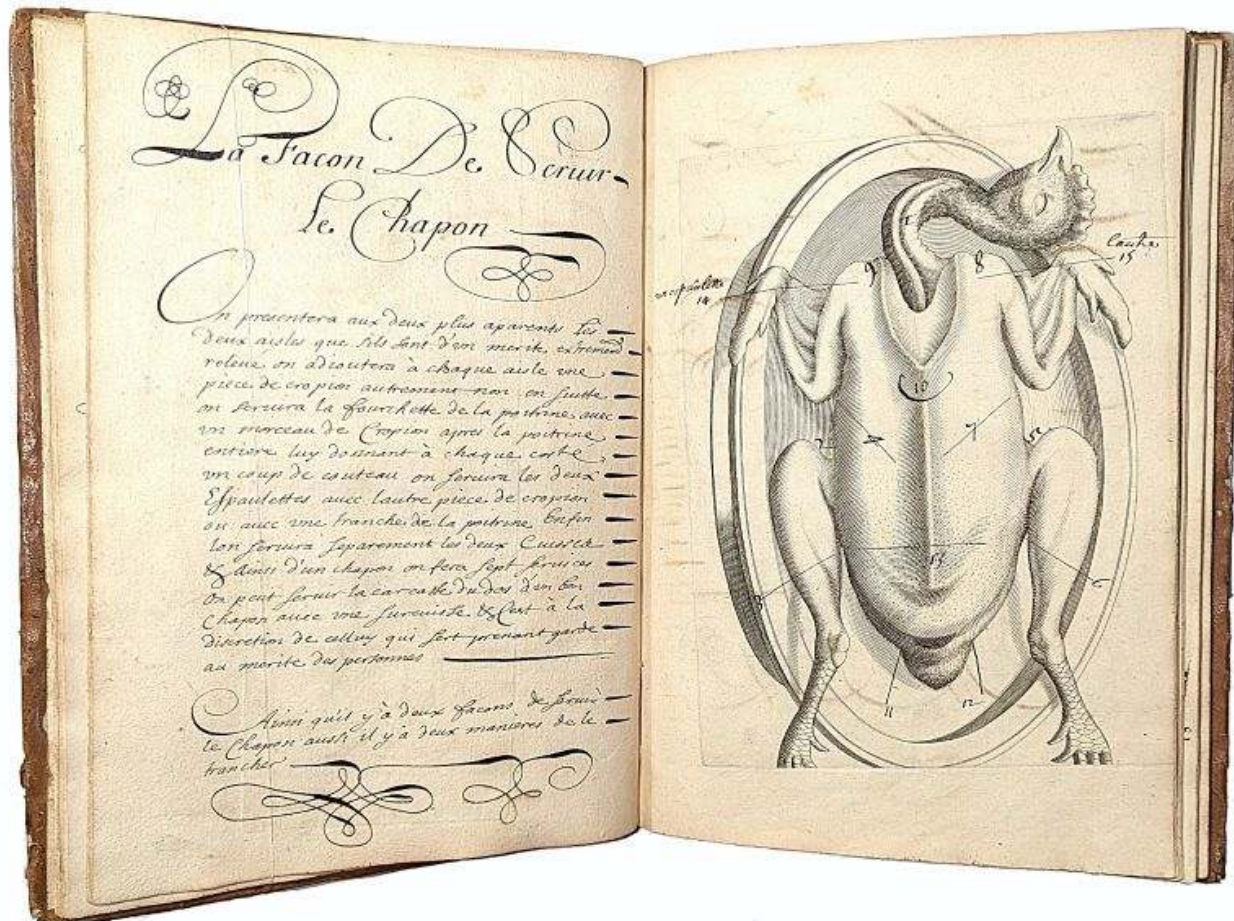 La Facon De Seruir
Le Chapon
On presentera aux deux plus aparents les
deux aisles que s'ils sont d'un merite extremem.t
releué on adioutera à chaque aisle vne
piece de cropion autrement non en suitte
on seruira la fourchette de la poitrine auec
vn morceau de Cropion apres la poitrine
entiere luy donnant à chaque costé
vn coup de couteau on seruira les deux
Espaulettes auec lautre piece de cropion
ou auec vne tranche de la poitrine Enfin
lon seruira separement les deux Cuisses
& Ainsi d'un chapon on fera sept seruices
On peut seruir la carcasse du dos d'un bon
Chapon auec vne surcuisse & C'est à la
discretion de celluy qui sert prenant garde
au merite des personnes
Ainsi qu'il y à deux facons de seruir
le Chapon aussi il y a deux manieres de le
trancher
1
9
8
vne espaulette
14
lautre
15
10
2
4
7
5
13
3
6
11
12